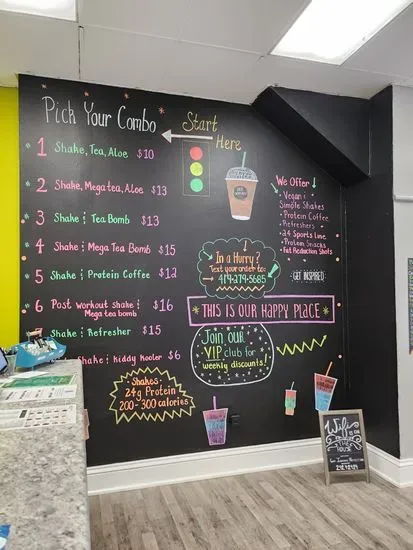 Pick Your Combo
Start
Here
1 Shake, Tea, Aloe $10
2 Shake, Mega tea, ALoe $13
3 Shake & Tea Bomb $13
4 Shake & Mega Tea Bomb $15
5 Shake & Protein Coffee $12
6 Post workout shake & $16
Mega tea bomb
Shake & Refresher $15
Shake & Kiddy Kooler $6
Shakes:
24g Protein
200-300 calories
We Offer
• Vegan &
Simple Shakes
• Protein Coffee
• Refreshers
• 24 Sports Line
• Protein Snacks
• Fat Reduction Shots
GET INSPIRED
In a Hurry?
Text your order to:
419-279-5685
THIS IS OUR HAPPY PLACE
Join our
VIP club for
weekly discounts!
Wifi is on
THE HOUSE